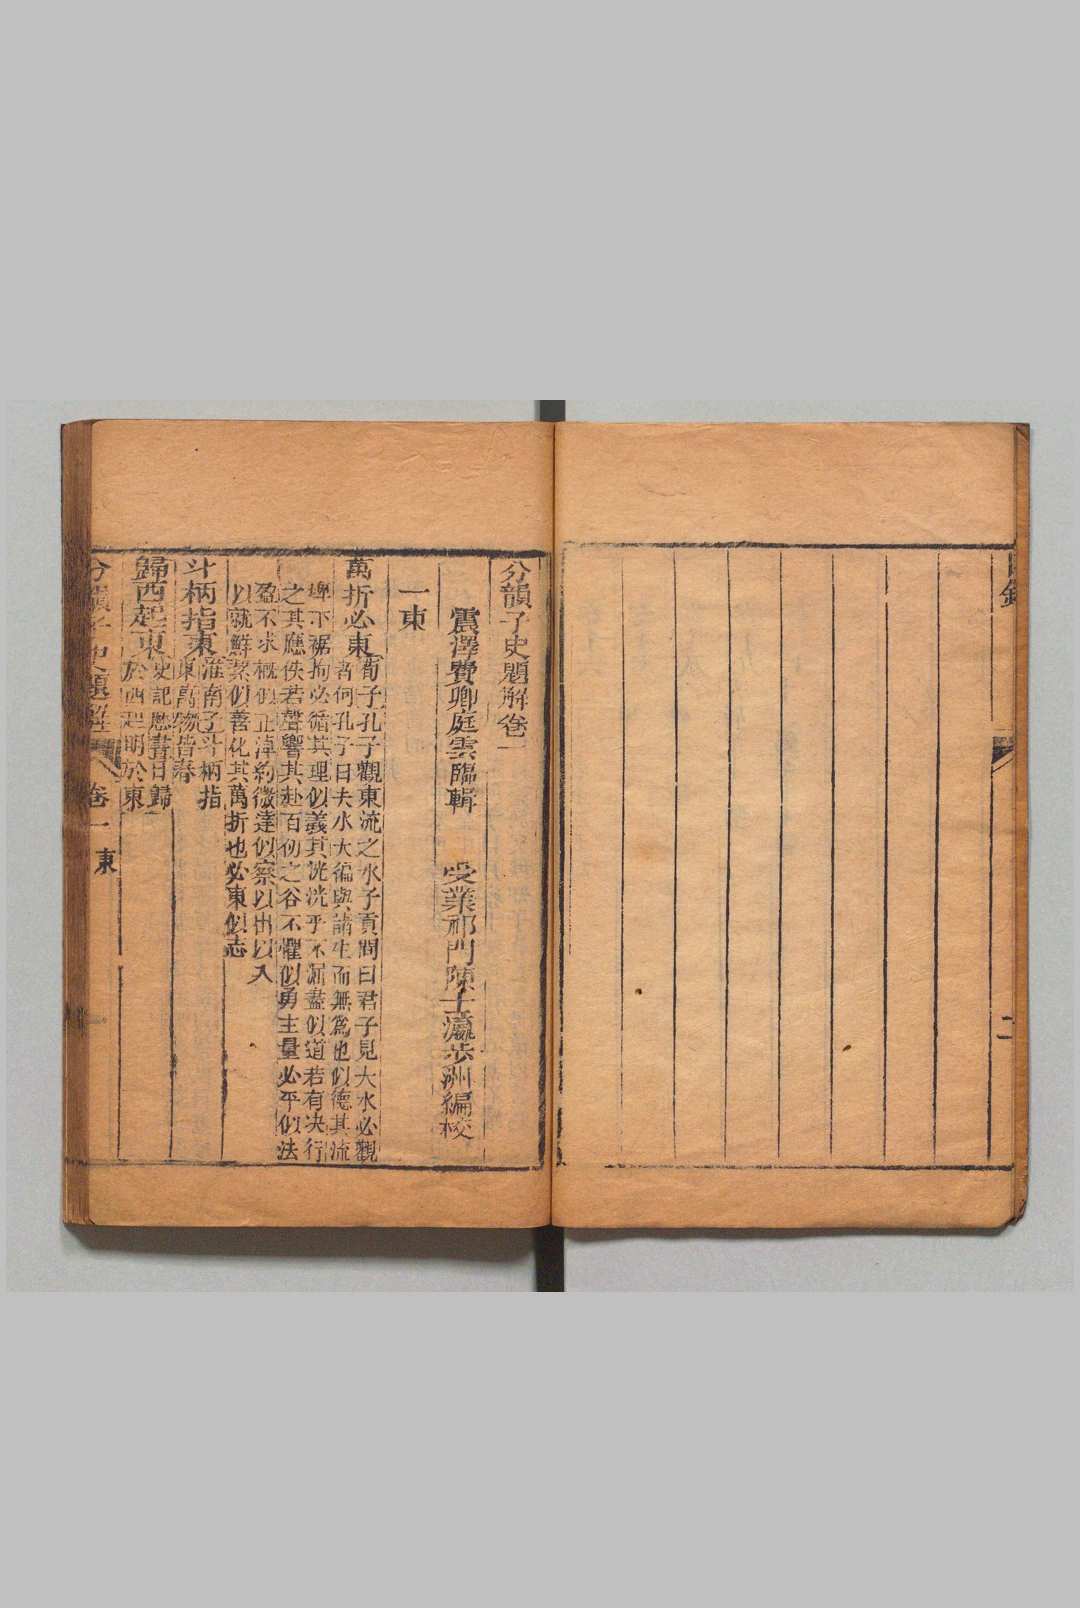 目錄
二
分韻子史題解卷一
震澤費卿庭雲臨輯　受業祁門陳士瀛步洲編校
一東
萬折必東
荀子孔子觀東流之水子貢問曰君子見大水必觀
者何孔子曰夫水大徧與諸生而無爲也似德其流
埤下裾拘必循其理似義其洸洸乎不淈盡似道若有决行
之其應佚若聲響其赴百仞之谷不懼似勇主量必平似法
盈不求概似正淖約微達似察以出以入
以就鮮絜似善化其萬折也必東似志
斗柄指東
淮南子斗柄指
東萬物皆春
歸西起東
史記厯書日歸
於西起明於東
分韻子史題解
卷一　東
一